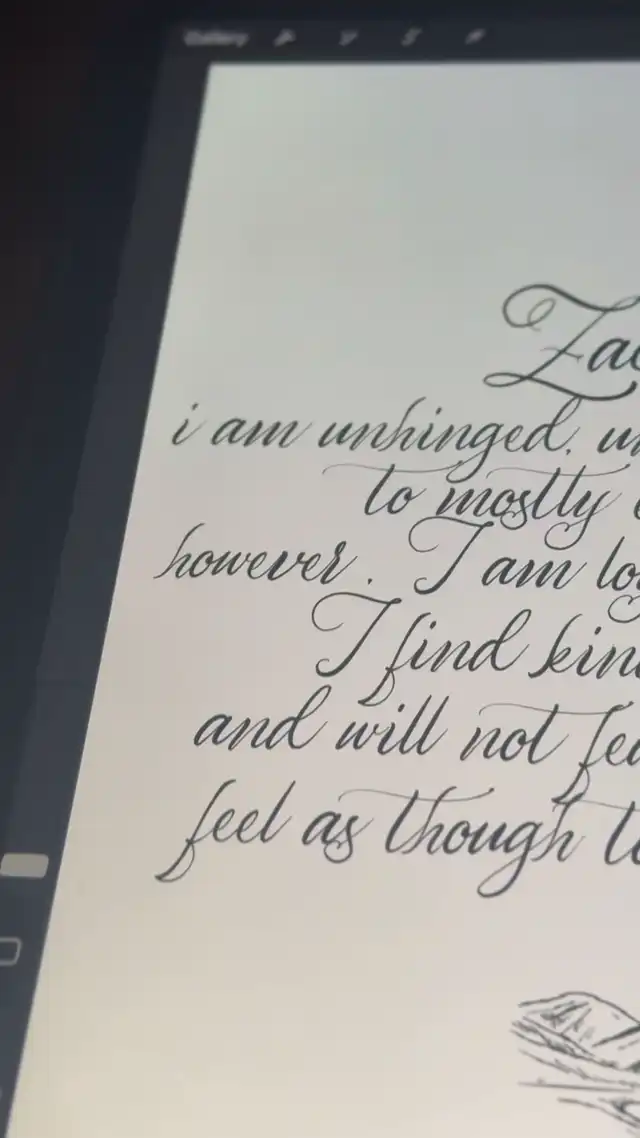 Gallery
i am unhinged.
to mostly
however. I am
I find
and will not
feel as though